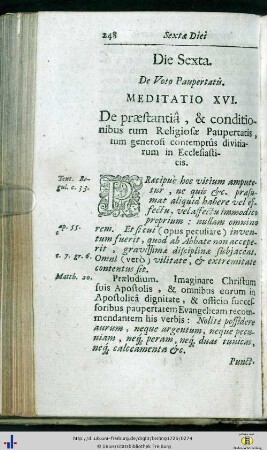 248 Sextæ Diei
Die Sexta.
De Voto Paupertatis.
MEDITATIO XVI.
De præstantiâ, & conditio-
nibus tum Religiosæ Paupertatis,
tum generosi contemptûs divitia-
rum in Ecclesiasti-
cis.
Text. Re- PRæcipuè hoc vitium ampute-
gul. c. 33. tur, ne quis &c. præsu-
mat aliquid habere vel ef-
fectu, vel affectu immodico
proprium: nullam omnino
ap. 55. rem. Et si cui (opus peculiare) in-
ventum fuerit, quod ab Abbate non accepe-
rit, gravissimæ disciplinæ subjaceat.
c. 7. gr. 6. Omni (verò) vilitate, & extremitate
contentus sit.
Matth. 10. Præludium. Imaginare Christum
suis Apostolis, & omnibus eorum in
Apostolicâ dignitate, & officio succes-
soribus paupertatem Evangelicam recom-
mendantem his verbis: Nolite possidere
aurum, neque argentum, neque pecu-
niam, neq; peram, neq; duas tunicas,
neq; calceamenta &c.
Punct.
© Universitätsbibliothek Freiburg